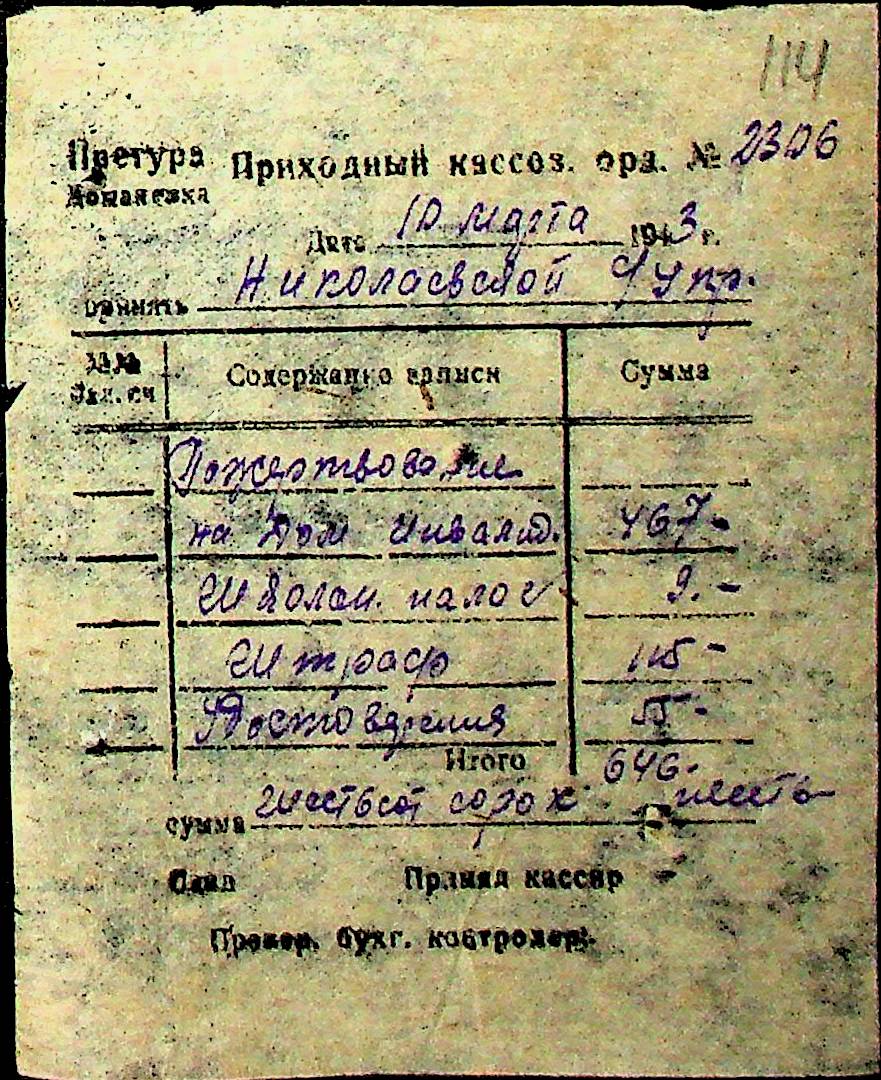 114
Претура Приходный кассов. орд. № 2306
Доманевка
Дата 10 марта 1943 г.
принять Николаевской с/упр.
Содержание записи Сумма
Пожертвование
на Дом инвалид. 467-
Школьн. налог 9.-
Штраф 115-
Удостоверения 55-
Итого 646.-
сумма шестьсот сорок шесть
Сдал Принял кассир
Провер. бухг. контролер.